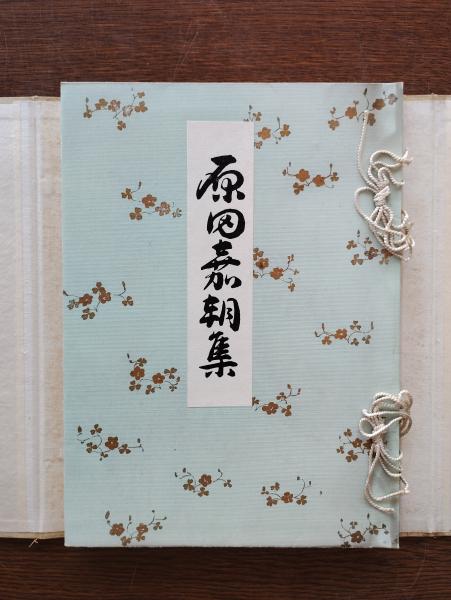 原田嘉朝集